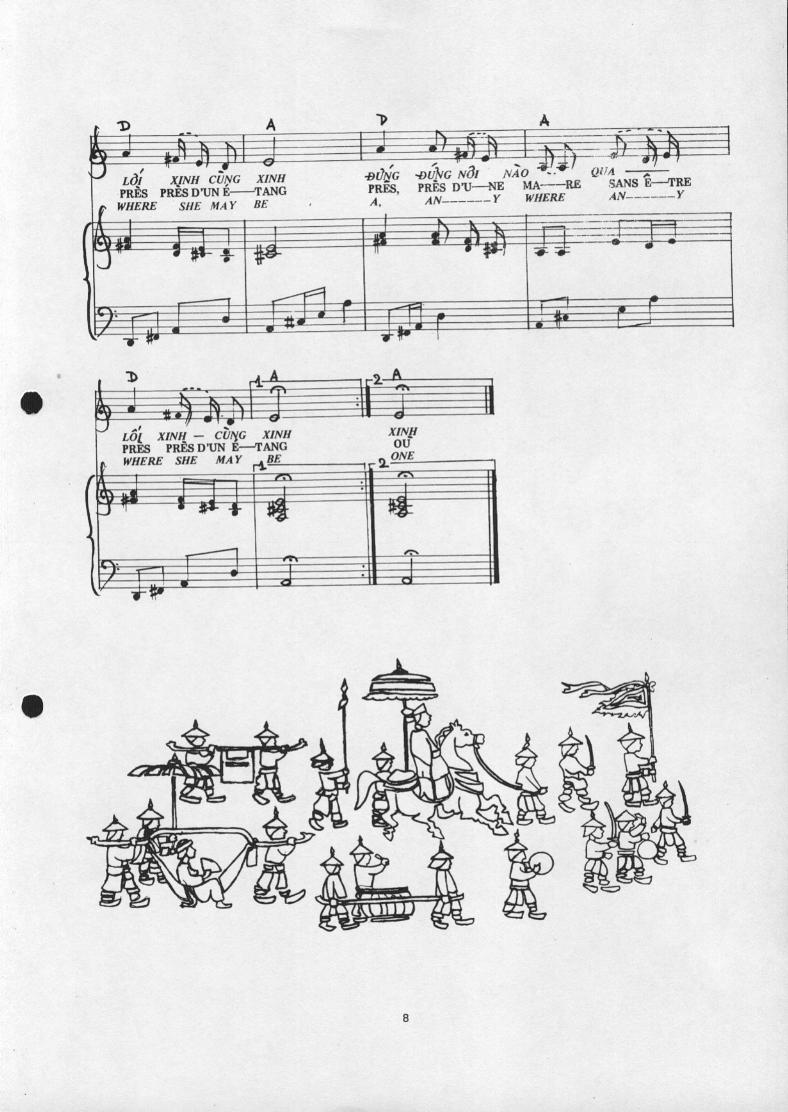 D A D A
LỐI XINH CÙNG XINH ĐỨNG ĐỨNG NƠI NÀO QUA
PRÈS PRÈS D'UN É—TANG PRÈS, PRÈS D'U—NE MA—RE SANS Ê—TRE
WHERE SHE MAY BE A, AN-------Y WHERE AN-------Y
D 1 A 2 A
LỐI XINH — CÙNG XINH XINH
PRÈS PRÈS D'UN É—TANG OÙ
WHERE SHE MAY BE ONE
1 2
8